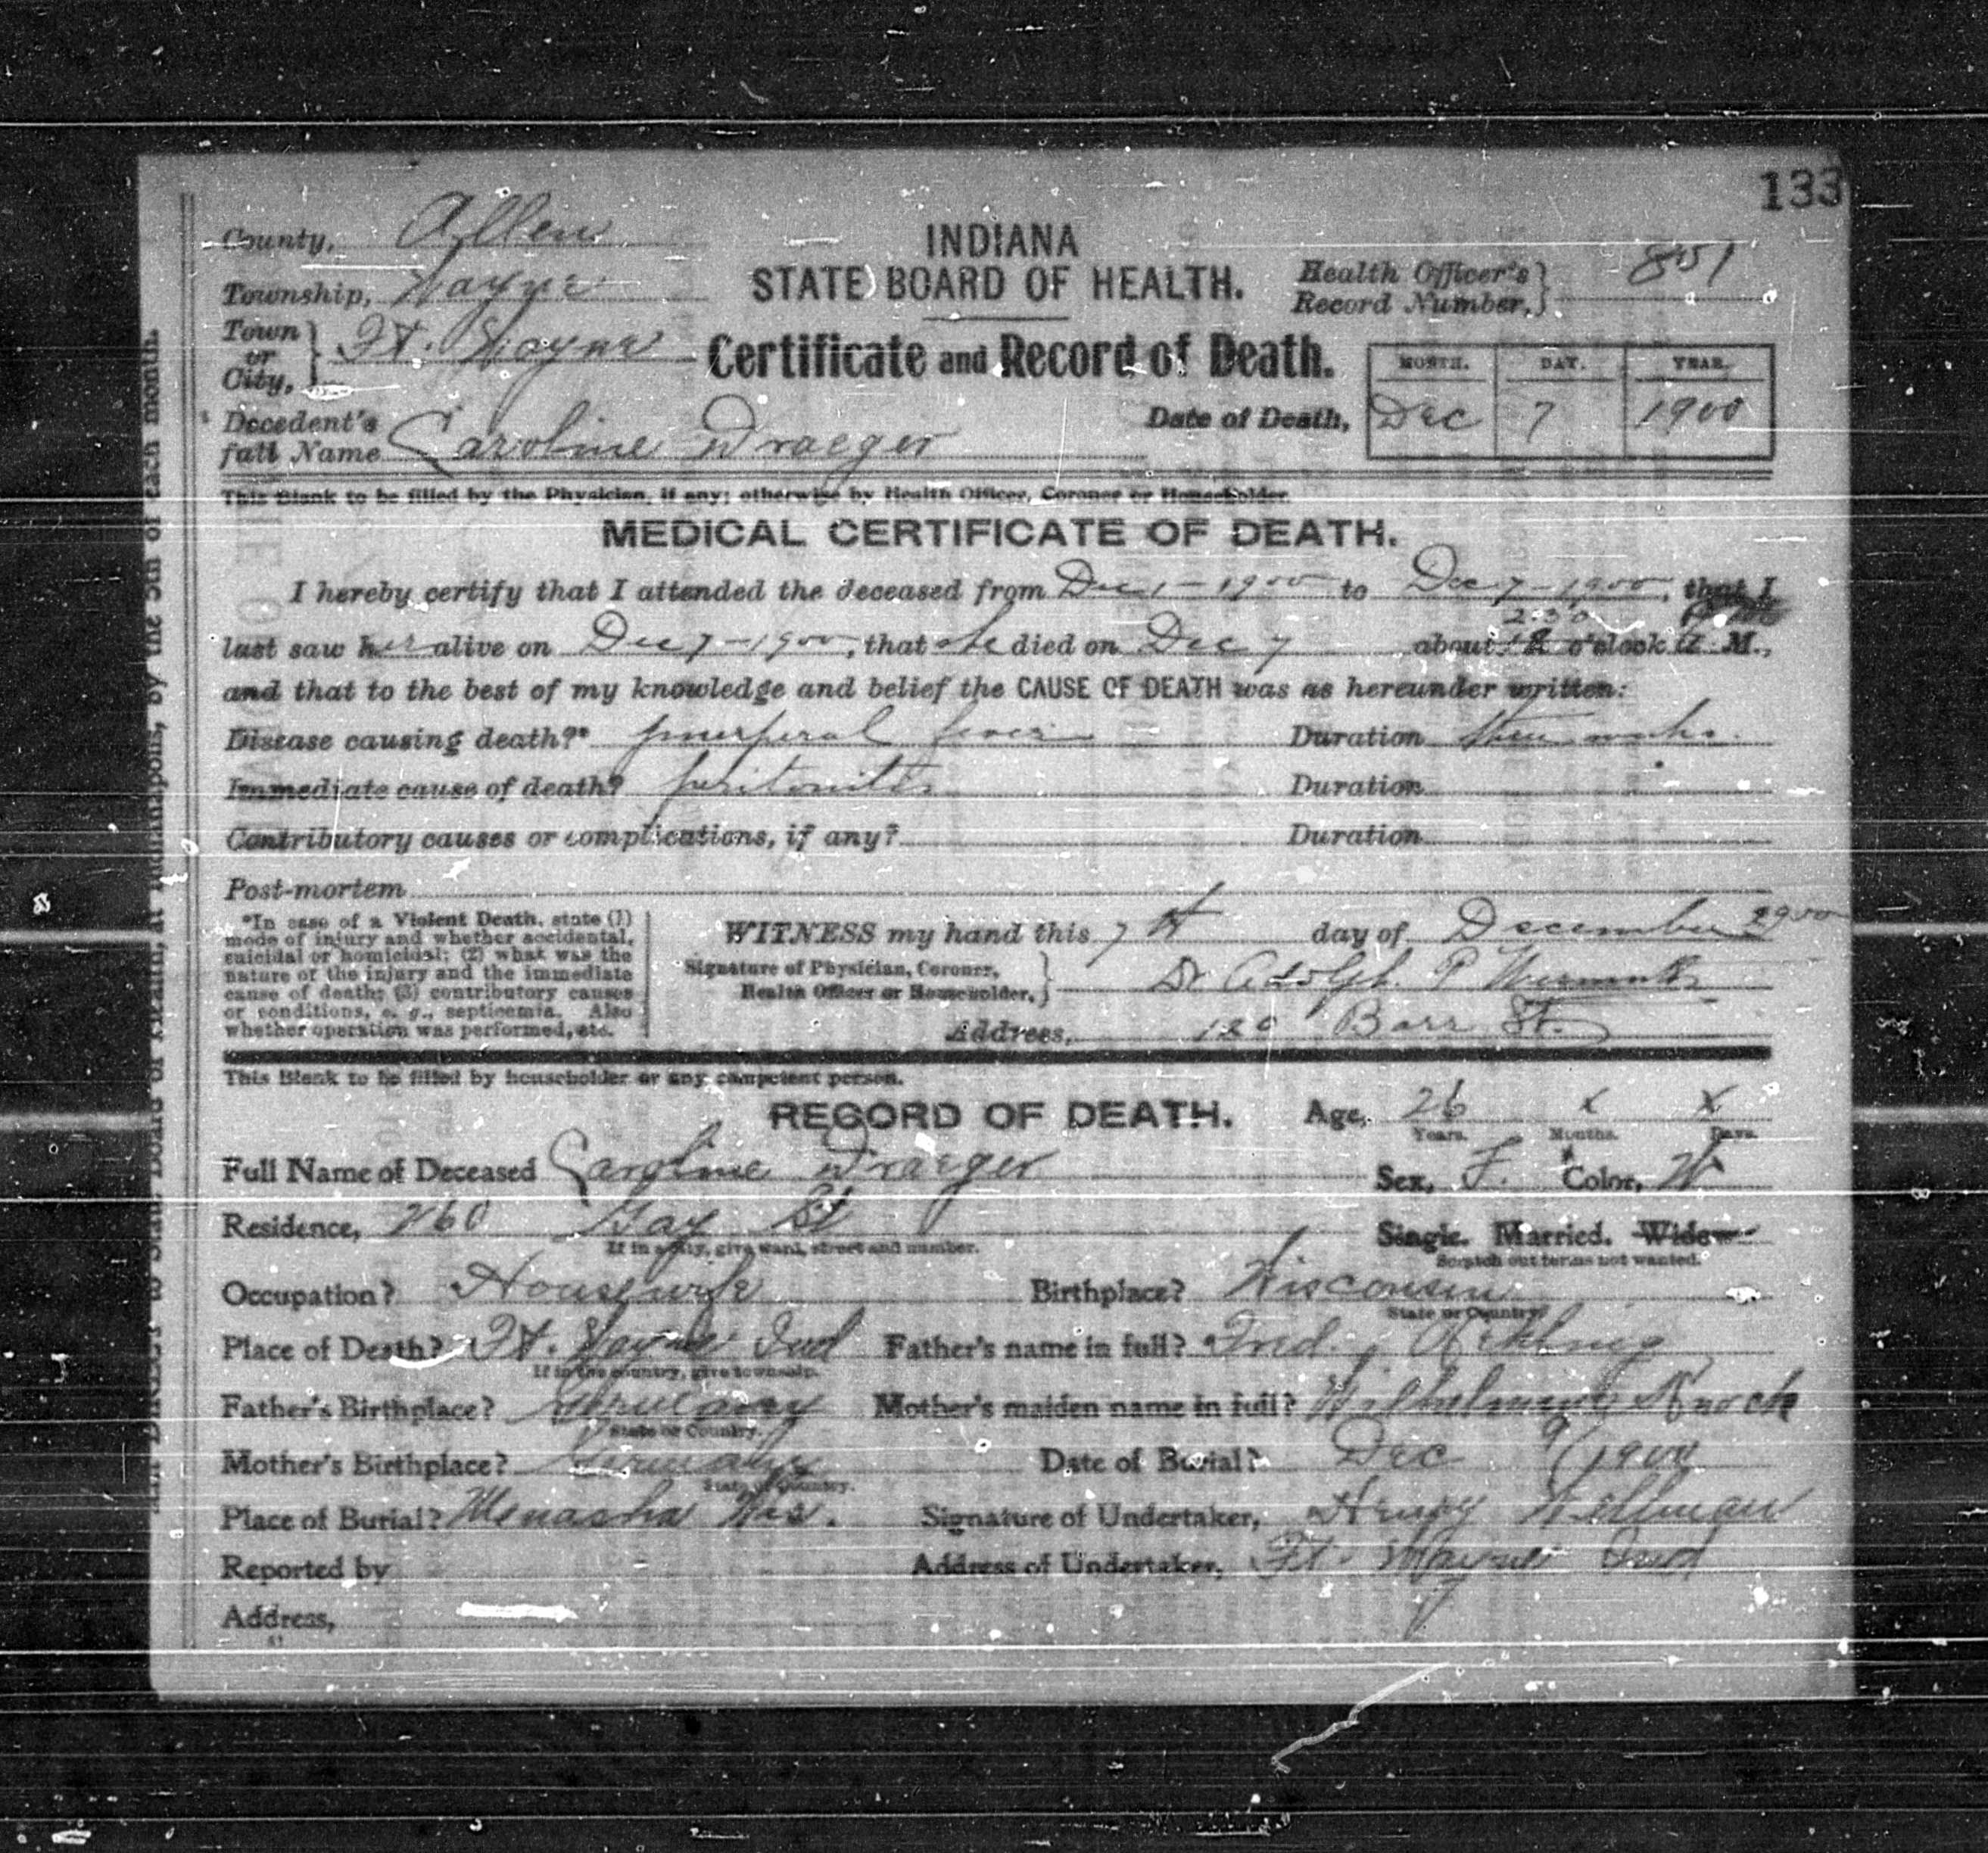 133
County, Allen
INDIANA
STATE BOARD OF HEALTH.
Health Officer's Record Number, 851
Township, Wayne
Town or City, Ft. Wayne
Certificate and Record of Death.
MONTH. DAY. YEAR.
Date of Death, Dec 7 1900
Decedent's full Name Caroline Draeger
This Blank to be filled by the Physician, if any; otherwise by Health Officer, Coroner or Householder.
MEDICAL CERTIFICATE OF DEATH.
I hereby certify that I attended the deceased from Dec 1 - 1900 to Dec 7 - 1900, that I
last saw her alive on Dec 7 - 1900, that she died on Dec 7 about 2.30 o'clock M.,
and that to the best of my knowledge and belief the CAUSE OF DEATH was as hereunder written:
Disease causing death?* puerperal fever Duration three weeks.
Immediate cause of death? peritonitis Duration
Contributory causes or complications, if any? Duration
Post-mortem
*In case of a Violent Death, state (1)
mode of injury and whether accidental,
suicidal or homicidal; (2) what was the
nature of the injury and the immediate
cause of death; (3) contributory causes
or conditions, e. g., septicemia. Also
whether operation was performed, etc.
WITNESS my hand this 7th day of December 1900
Signature of Physician, Coroner, Health Officer or Householder, Dr Adolph P
Address, Barr St.
This Blank to be filled by householder or any competent person.
RECORD OF DEATH.
Age, 26 x x
Years. Months. Days.
Full Name of Deceased Caroline Draeger
Sex, F. Color, W
Residence, 260 Gay St
If in a city, give ward, street and number.
Single. Married. Widow
Scratch out terms not wanted.
Occupation? Housewife Birthplace? Wisconsin
State or Country.
Place of Death? Ft. Wayne Ind Father's name in full? Fred.
If in the country, give township.
Father's Birthplace? Germany Mother's maiden name in full? Wilhelmina Knock
State or Country.
Mother's Birthplace? Germany Date of Burial? Dec 9/1900
State or Country.
Place of Burial? Menasha Wis. Signature of Undertaker, Henry Wellman
Reported by Address of Undertaker, Ft. Wayne Ind
Address,